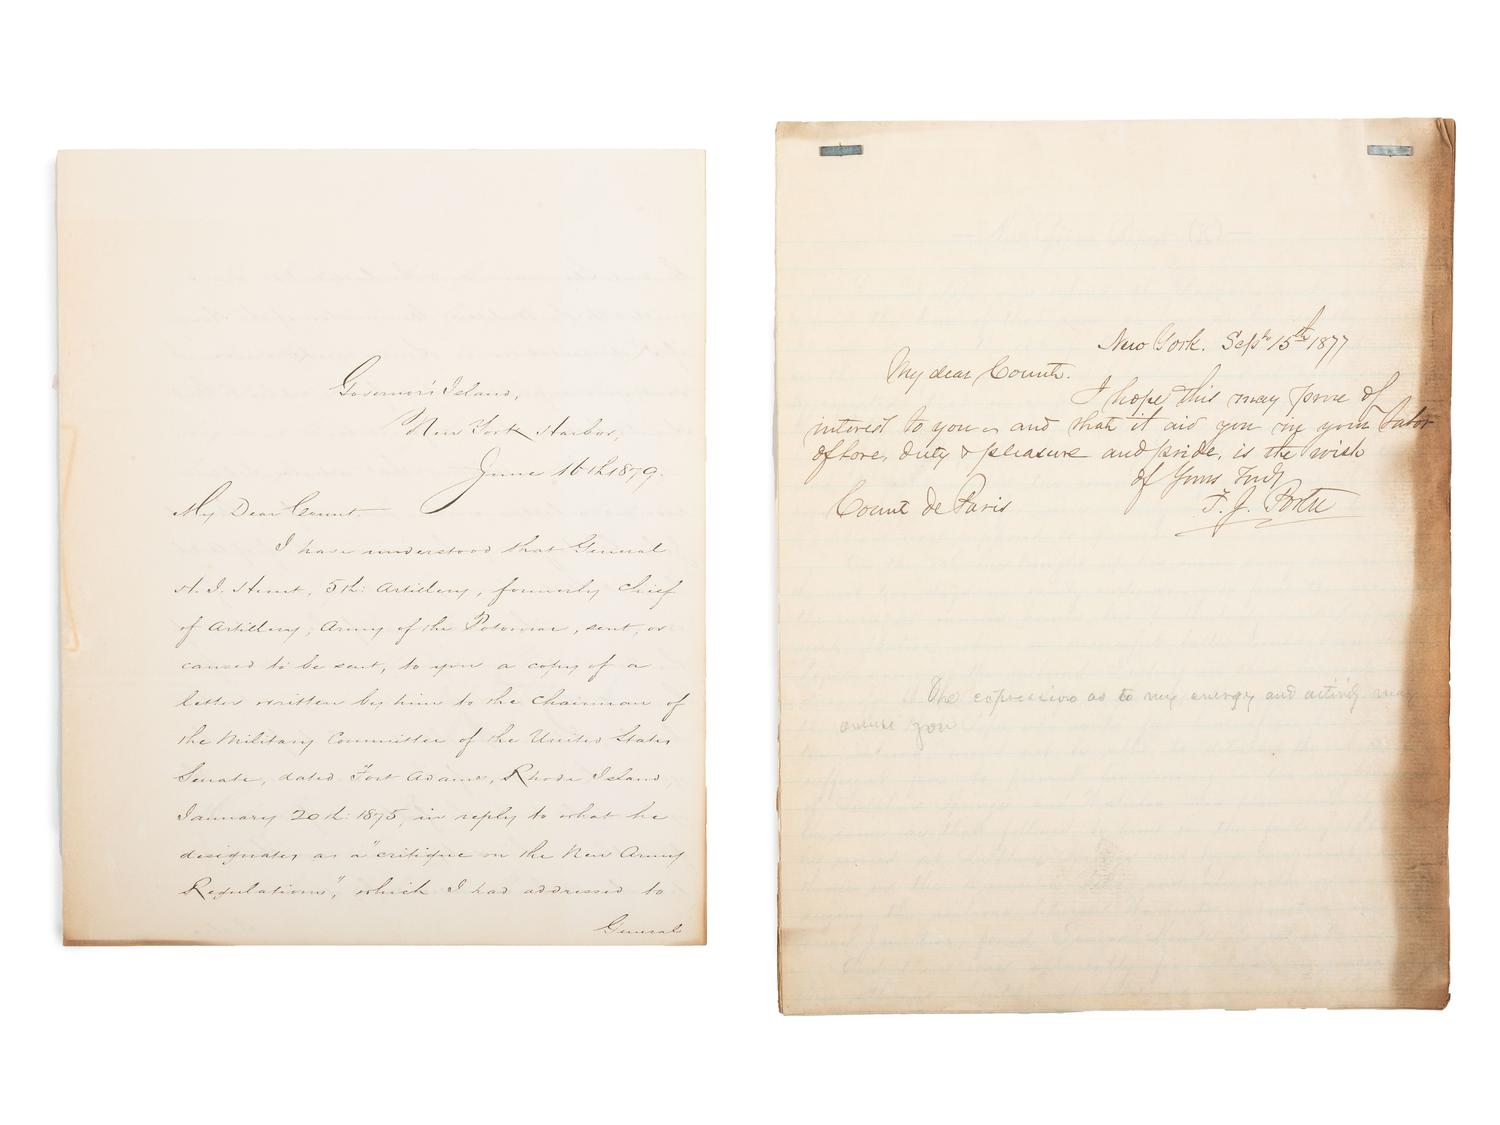 Governor's Island,
New York Harbor,
June 16th 1879.
My Dear Count.
I have understood that General
H. J. Hunt, 5th: Artillery, formerly Chief
of Artillery, Army of the Potomac, sent, or
caused to be sent, to you a copy of a
letter written by him to the Chairman of
the Military Committee of the United States
Senate, dated Fort Adams, Rhode Island,
January 20th: 1875, in reply to what he
designates as a "critique on the New Army
Regulations", which I had addressed to
General
New York. Sept 15th 1877
My dear Count.
I hope this may prove of
interest to you and that it aid you in your labor
of love, duty & pleasure and pride, is the wish
of Yours Truly
Count de Paris
F. J. Porter
The expression as to my energy and activity may
amuse you